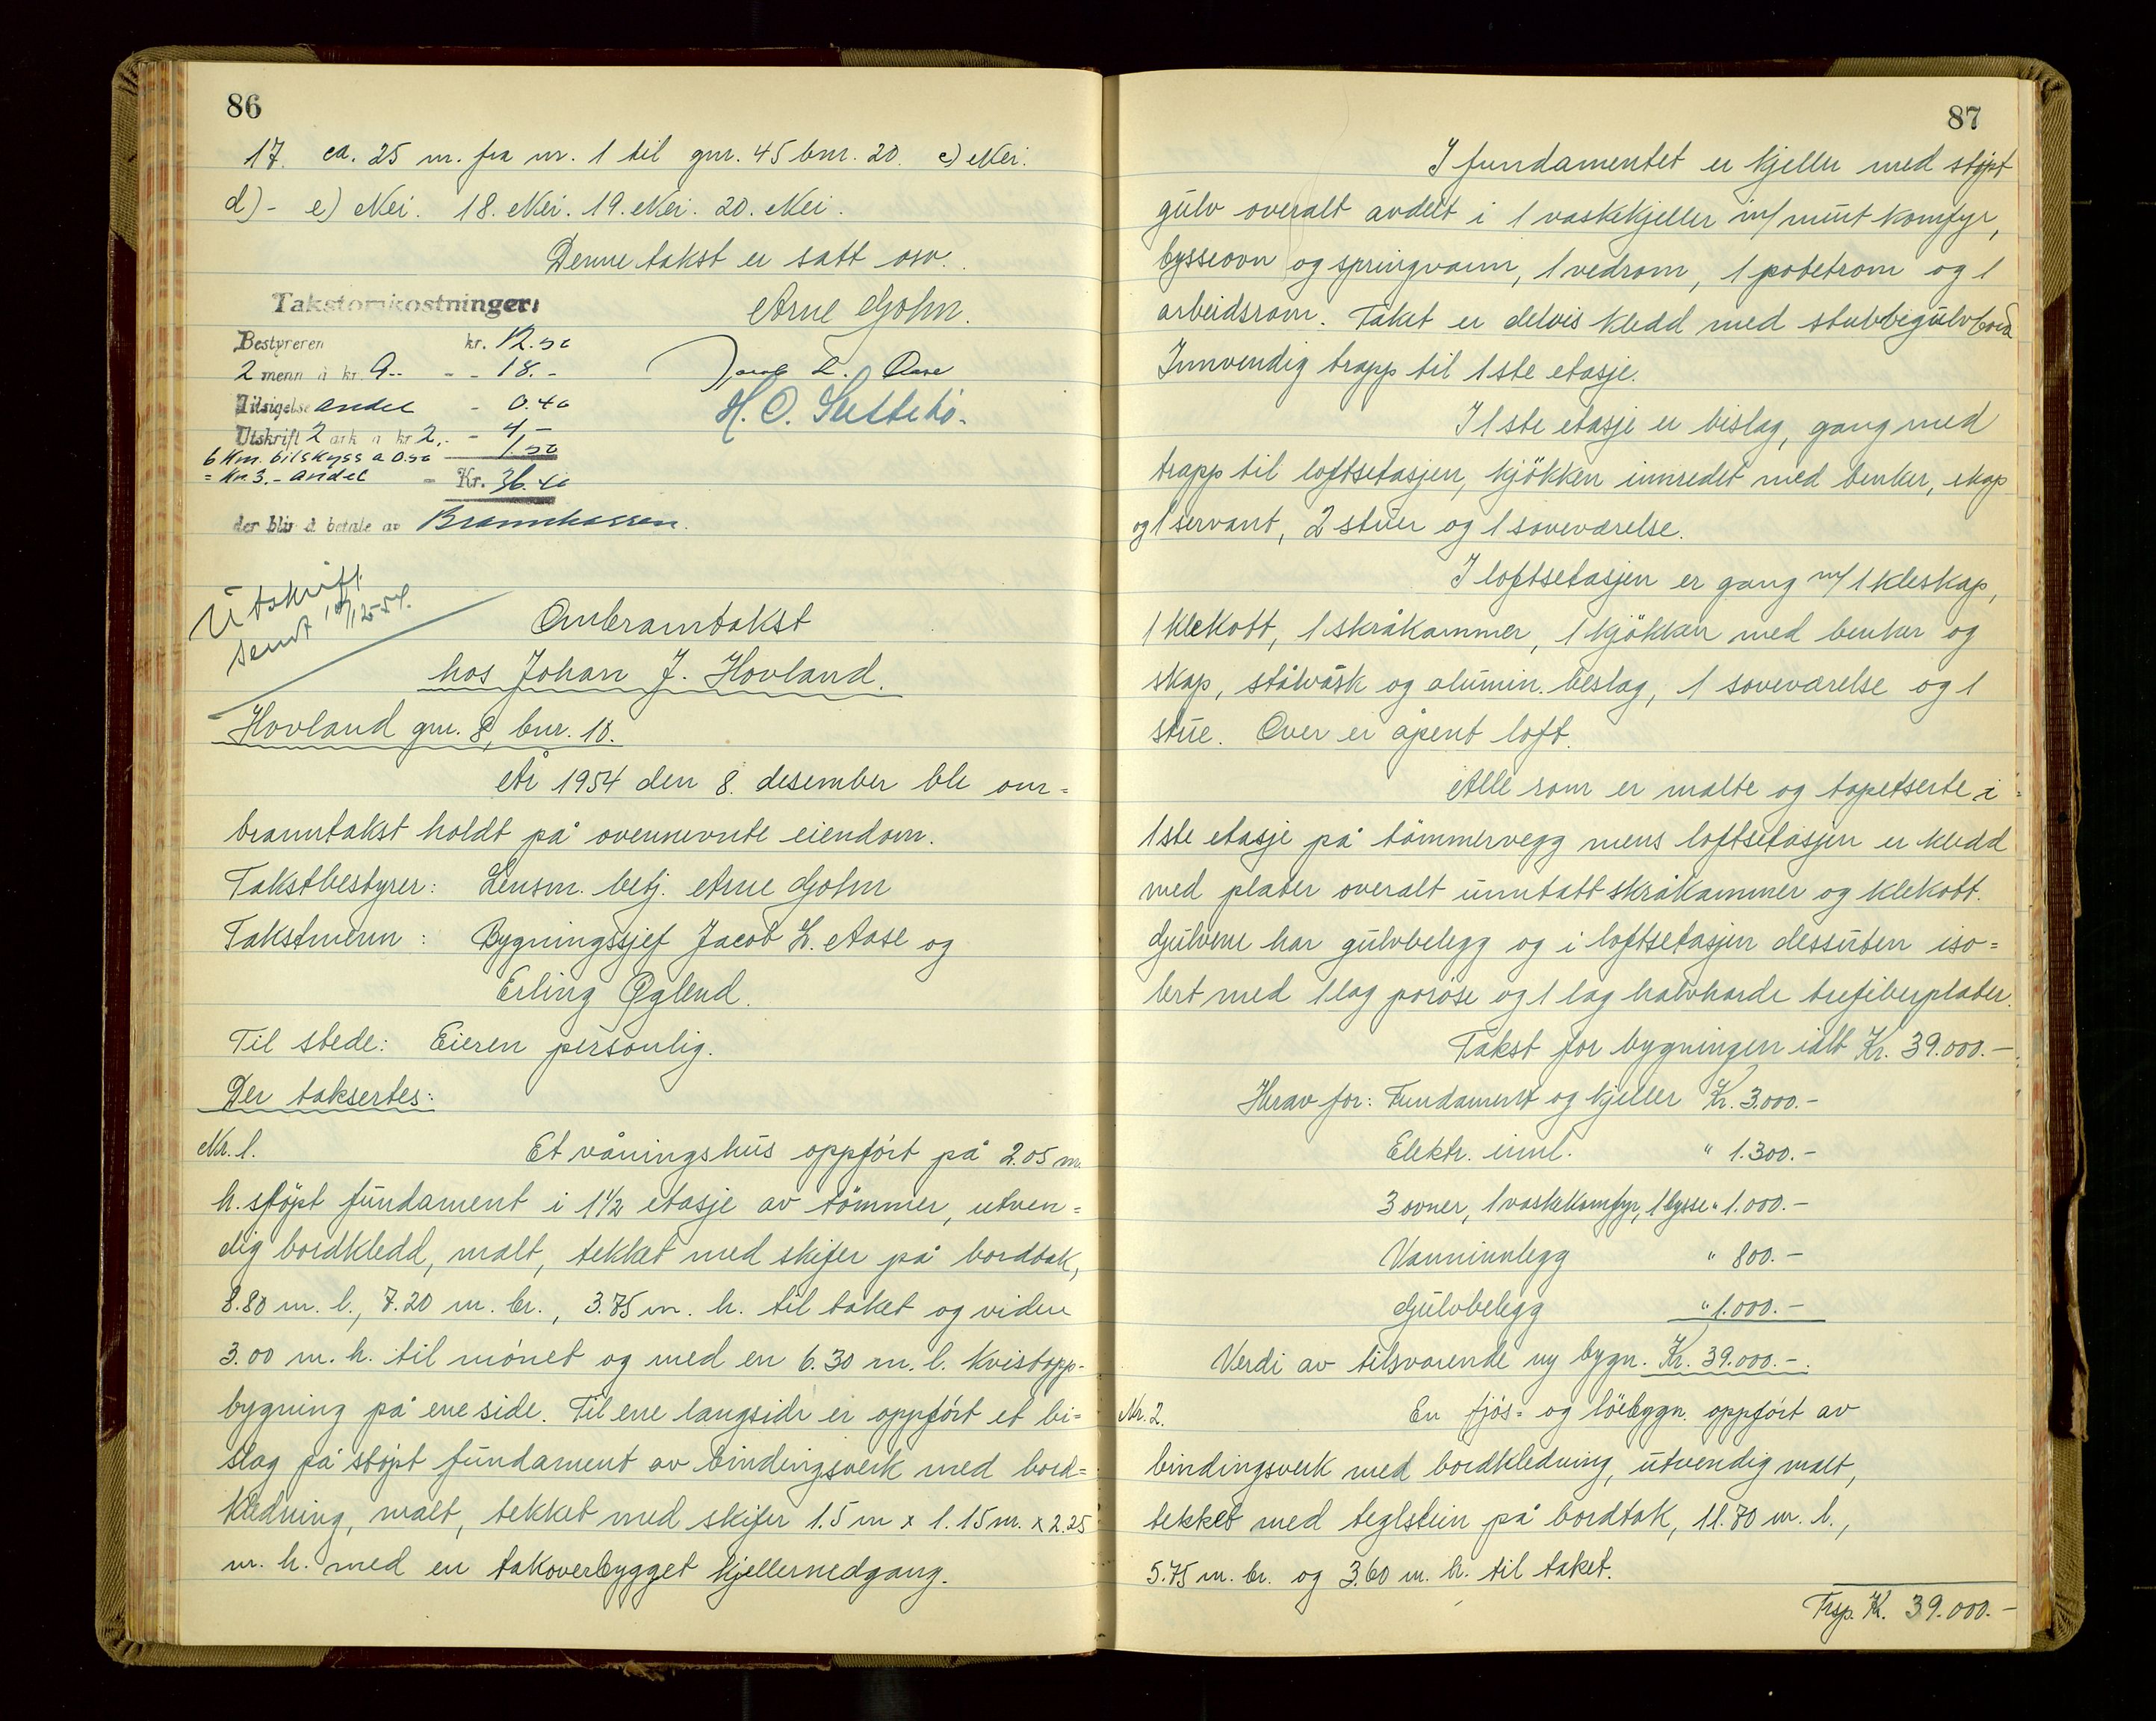 86
17. ca. 25 m. fra nr. 1 til gnr. 45 bnr. 20. c) Nei.
d) - e) Nei. 18. Nei. 19. Nei. 20. Nei.
Denne takst er satt osv.
Takstomkostninger:
Arne Gjohn.
Bestyreren kr. 12.50
2 menn à kr. 9.- - - 18.-
Jacob L. Aase
Tilsigelse andel - 0.40
Utskrift 2 ark à kr 2,- - 4,-
6 Km. bilskyss a 0.50 1,50
= Kr. 3.- andel - Kr. 36.40
der blir å betale av Brannkassen.
Utskrift
sendt
Ombranntakst
hos Johan J. Hovland.
Hovland gnr. 8, bnr. 18.
År 1954 den 8. desember ble om=
branntakst holdt på ovennevnte eiendom.
Takstbestyrer: Lensm. betj. Arne Gjohn
Takstmenn : Bygningssjef Jacob L. Aase og
Erling Øglend.
Til stede: Eieren personlig.
Der taksertes:
Nr. 1. Et våningshus oppført på 2.05 m.
h. støpt fundament i 1 1/2 etasje av tømmer, utven=
dig bordkledd, malt, tekket med skifer på bordtak,
8.80 m. l., 7.20 m. br., 3.75 m. h. til taket og videre
3.00 m. h. til mønet og med en 6.30 m. l. kvistopp-
bygning på ene side. Til ene langside er oppført et bi=
slag på støpt fundament av bindingsverk med bord=
kledning, malt, tekket med skifer 1.5 m x 1.15 m. x 2.25
m. h. med en takoverbygget kjellernedgang.
87
I fundamentet er kjeller med støpt
gulv overalt avdelt i 1 vaskekjeller m/ murt komfyr,
bysseovn og springvann, 1 vedrom, 1 potetrom og 1
arbeidsrom. Taket er delvis kledd med stubbegulvbord
Innvendig trapp til 1ste etasje.
I 1ste etasje er bislag, gang med
trapp til loftsetasjen, kjøkken innredet med benker, skap
og 1 servant, 2 stuer og 1 soveværelse.
I loftsetasjen er gang m/ 1 kleskap,
1 klekott, 1 skråkammer, 1 kjøkken med benker og
skap, stålvask og alumin. beslag, 1 soveværelse og 1
stue. Over er åpent loft.
Alle rom er malte og tapetserte i
1ste etasje på tømmervegg mens loftsetasjen er kledd
med plater overalt unntatt skråkammer og klekott.
Gulvene har gulvbelegg og i loftsetasjen dessuten iso=
lert med 1 lag porøse og 1 lag halvharde trefiberplater.
Takst for bygningen ialt Kr. 39.000.-
Herav for: Fundament og kjeller Kr. 3.000.-
Elektr. innl. " 1.300.-
3 ovner, 1 vaskekomfyr, 1 bysse " 1.000.-
Vanninnlegg " 800.-
Gulvbelegg " 1.000.-
Verdi av tilsvarende ny bygn. Kr. 39.000.-.
Nr. 2. En fjøs= og løebygn. oppført av
bindingsverk med bordkledning, utvendig malt,
tekket med teglstein på bordtak, 11.70 m. l.,
5.75 m. br. og 3.60 m. h. til taket.
Trsp. Kr. 39.000.-